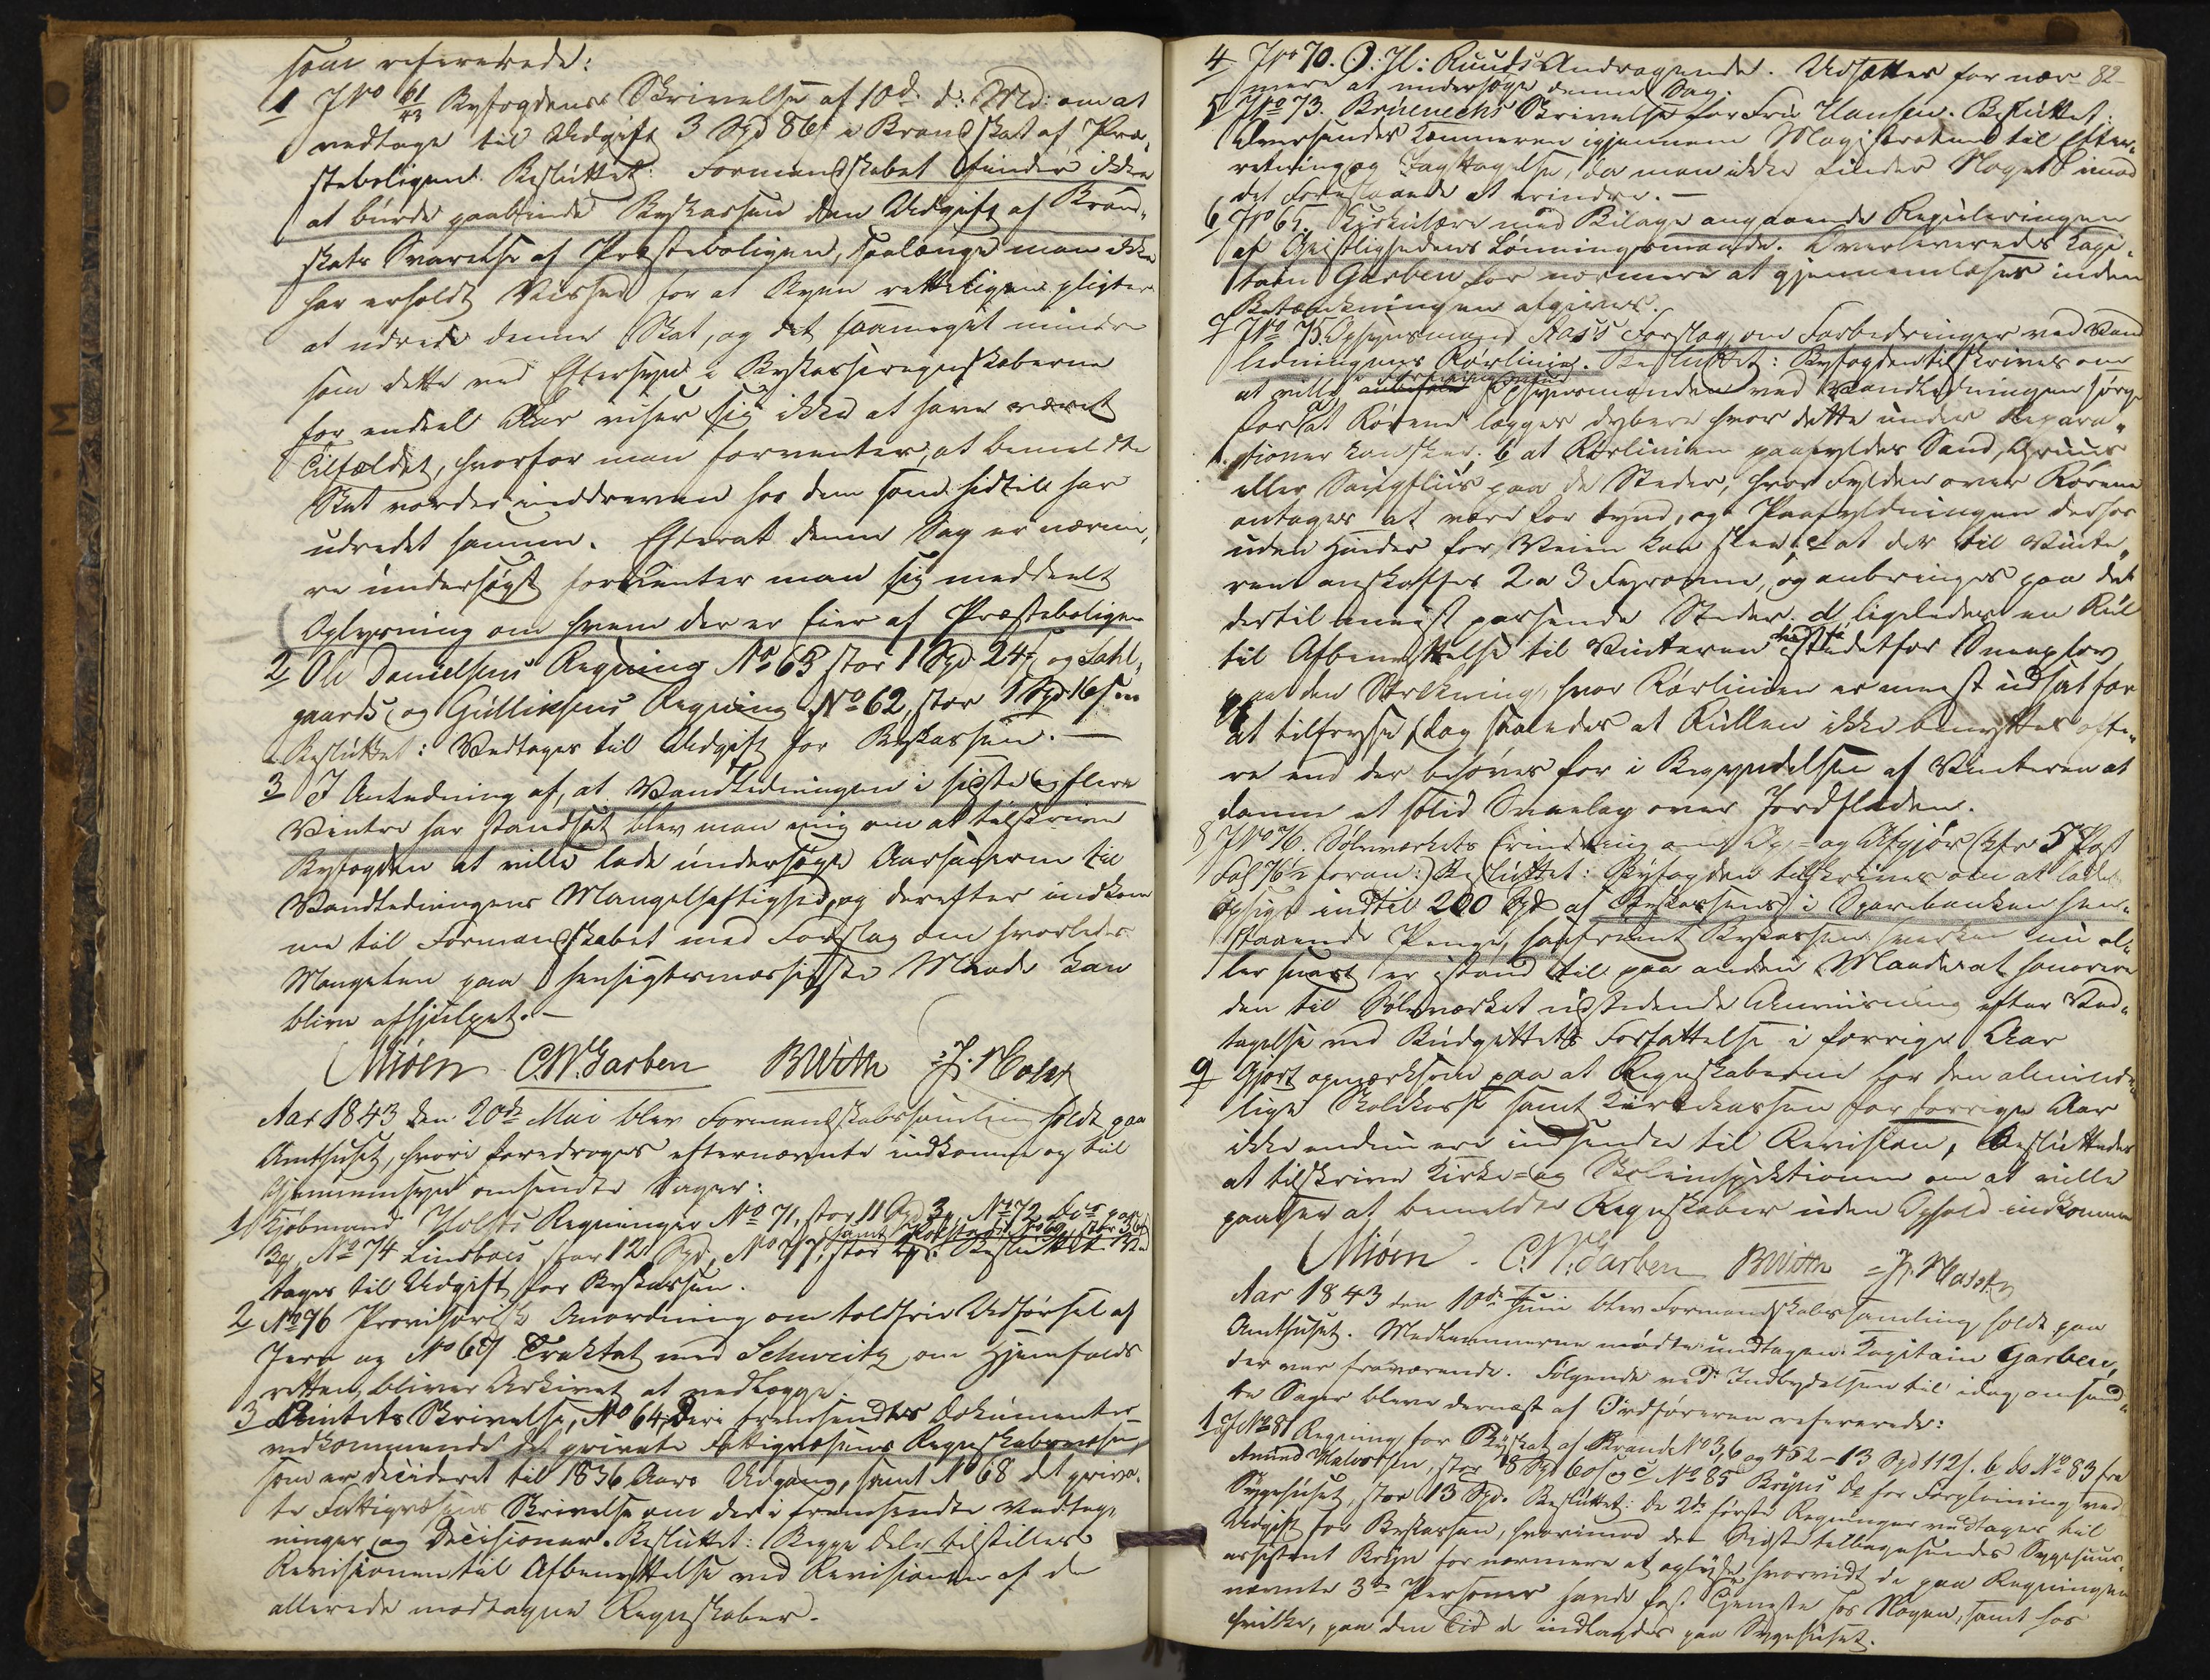 som refererede:
1 J No 61/43 Byfogdens Skrivelse af 10de d: Md: om at
vedtage til Udgift 3 Spd 86 s i Brandskat af Præ-
steboligen. Besluttet: Formandskabet finder ikke
at burde paabinde Bykassen den Udgift af Brand-
skats Svarelse af Præsteboligen, saalænge man ikke
har erholdt Vished for at Byen retteligen pligter
at udrede denne Skat, og det saameget mindre
som dette ved Eftersyn i Bykasseregnskaberne
for endeel Aar viser sig ikke at have været
Tilfældet, hvorfor man forventer, at bemeldte
Skat vorder inddreven hos dem som hidtil har
udredet samme. Efterat denne Sag er nærme-
re undersøgt forventer man sig meddeelt
Oplysning om hvem der er Eier af Præsteboligen
2 Ole Danielsens Regning No 63 stor 1 Spd 24 s og Dahl-
gaards og Gulliksens Regning No 62, stor 1 Spd 16 s
Besluttet: Vedtages til Udgift for Bykassen. —
3 I Anledning af, at Vandledningen i sidste og flere
Vintre har standset blev man enig om at tilskrive
Byfogden at ville lade undersøge Aarsagerne til
Vandledningens Mangelhaftighed, og derefter indkom-
me til Formandskabet med Forslag om hvorledes
Mangelen paa hensigtsmæssigste Maade kan
blive afhjulpet. —
Miøen C.W. Garben BWith H. Holst
Aar 1843 den 20de Mai blev Formandskabssamling holdt paa
Amthuset, hvori foredroges efternævnte indkomne og til
Gjennemsyn omsendte Sager:
1 Kjøbmand Holsts Regninger No 71, stor 11 Spd 3 s, No 72
3 s, No 74 Lindboes stor 12 Spd, No 77, stor samt No 69 Besluttet: Ved-
tages til Udgift for Bykassen.
2 No 76 Provisorisk Anordning om toldfrie Udførsel af
Jern og No 67 Traktat med Schweitz om Hjemfalds
retten, bliver Arkivet at vedlægge.
3 Amtets Skrivelse, No 64, deri fremsendtes Dokumenter
vedkommende det private Fattigvæsens Regnskabsvæsen,
som er decideret til 1836 Aars Udgang, samt No 68 det priva-
te Fattigvæsens Skrivelse om deri fremsendte Vedteg-
ninger og Decisioner. Besluttet: Begge Dele tilstilles
Revisionen til Afbenyttelse ved Revisionen af de
allerede modtagne Regnskaber.
82
4 J No 70. O: Hl: Ruuds Andragende. Udsættes for nær-
mere at undersøge denne Sag.
5 J No 73. Brüenechs Skrivelse for Fru Hansen. Besluttet:
Oversendes Kæmneren igjennem Magistraten til Efter-
retning og Iagttagelse, da man ikke finder Noget imod
det Foreslaaede at erindre. —
6 J No 65. Cirkulære med Bilage angaaende Reguleringen
af Geistlighedens Lønningsmaade. Overleveredes Capi-
tain Garben for nærmere at gjennemlæses inden
Betænkningen afgives.
7 J No 75. Opsynsmand Aas's Forslag om Forbedringer ved Vand
ledningens Rørlinie. Besluttet: Byfogden tilskrives om
at ville Opsynsmanden ved Vandledningen sørge
for a at Rørene lægges dybere hvor dette under Repara-
tioner kan skee. b at Rørlinien paafyldes Sand, Gruus
eller Saugfliis paa de Steder, hvor Fylden over Rørene
antages at være for tynd, og Paafyldningen derhos
uden Hinder for Veien kan skee; c at der til Vinte-
ren anskaffes 2 a 3 Fyrovne, og anbringes paa det
dertil meest passende Steder. d, ligeledes en Rul
til Afbenyttelse til Vinteren istedetfor Sneeplov
paa den Strækning, hvor Rørlinien er meest udsat for
at tilfryse, dog saaledes at Rullen ikke benyttes ofte-
re end der behøves for i Begyndelsen af Vinteren at
danne et solid Sneelag over Jordfladen.
8 J No 76. Sølvværkets Erindring om Op- og Afgjør (kfr 5 Post
Fol 76½ foran:) Besluttet: Byfogden tilskrives om at lade
opsige indtil 200 Spd af Bykassens i Sparebanken hen-
staaende Penge, saafremt Bykassen hverken nu el-
ler snart er istand til paa anden Maade at honorere
den til Sølvværket udstedende Anviisning efter Ved-
tagelse ved Budgettets Forfattelse i forrige Aar
9 Gjort opmærksom paa at Regnskaberne for den alminde-
lige Skolekasse samt Kirkekassen for forrige Aar
ikke endnu ere indsendte til Revision, besluttedes
at tilskrive Kirke- og Skoleinspektionen om at ville
paasee at bemeldte Regnskaber uden Ophold indkomme
Miøen. C.W. Garben BWith H. Holst
Aar 1843 den 10de Juni blev Formandskabssamling holdt paa
Amthuset. Medlemmerne mødte undtagen Kapitain Garben,
der var fraværende. Følgende ved Indbydelsen til idag omsend-
te Sager bleve dernæst af Ordføreren refererede:
1 a J No 81 Regning for Byskat af Brand No 3, 6 og 452 - 13 Spd 112 s. b do No 83 fra
Amund Halvorsen, stor 8 Spd 60 s og c No 85 Bryns do for Forpleining ved
Sygehuset, stor 13 Spd. Besluttet: De 2de første Regninger vedtages til
Udgift for Bykassen, hvorimod den Sidste tilbagesendes Sygehuus-
assistent Bryn for nærmere at oplyse, hvorvidt de paa Regningen
nævnte 3de Personer havde fast Tjeneste hos Nogen, samt hos
hvilke, paa den Tid de indlagdes paa Sygehuset.